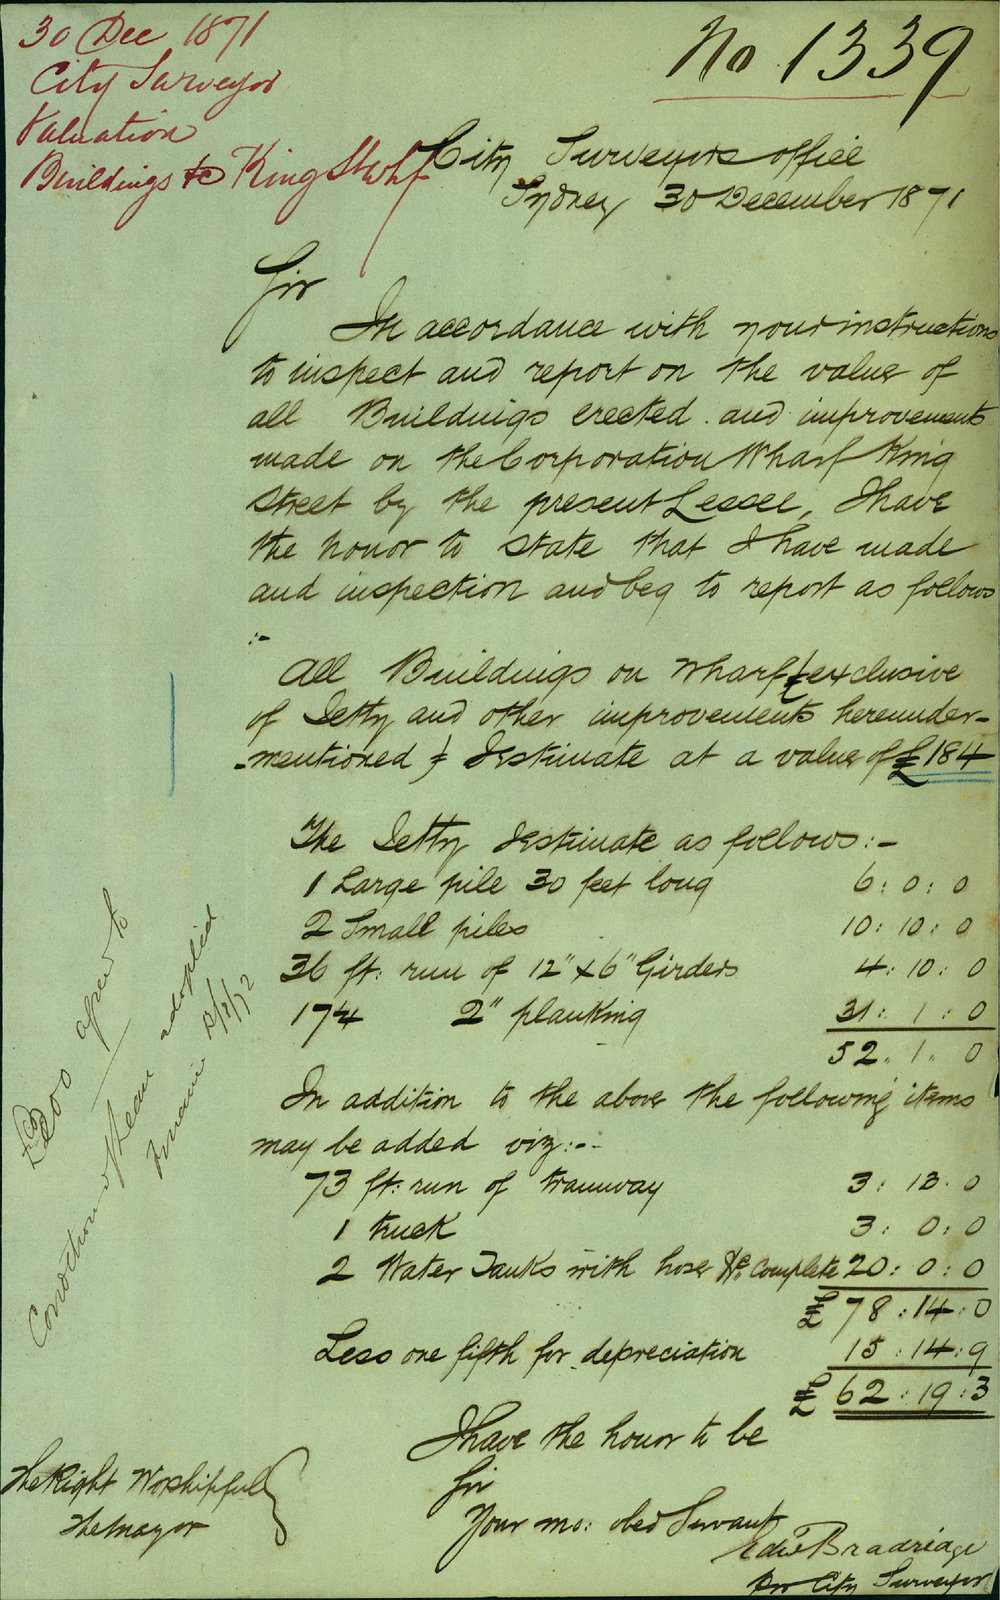 30 Dec 1871
City Surveyor
Valuation
Buildings &c King St Whf
No 1339
City Surveyors office
Sydney 30 December 1871
Sir
In accordance with your instructions
to inspect and report on the value of
all Buildings erected and improvements
made on the Corporation Wharf King
Street by the present Lessee, I have
the honor to state that I have made
and inspection and beg to report as follows
:-
All Buildings on Wharf exclusive
of Jetty and other improvements hereunder-
-mentioned I Estimate at a value of £184
The Jetty I Estimate as follows:-
1 Large pile 30 feet long 6: 0: 0
2 Small piles 10: 10: 0
36 ft: run of 12" x 6" Girders 4: 10: 0
174 2" planking 31: 1: 0
52. 1. 0
In addition to the above the following items
may be added viz:--
73 ft: run of tramway 3: 13. 0
1 truck 3: 0: 0
2 Water Tanks with hose &c. complete 20: 0: 0
£78:14:0
Less one fifth for depreciation 15:14:9
£62:19:3
I have the honor to be
Sir
Your mo: obed Servant
Edwd Bradridge
pro City Surveyor
The Right Worshipful
The Mayor
£200 agreed to
adopted